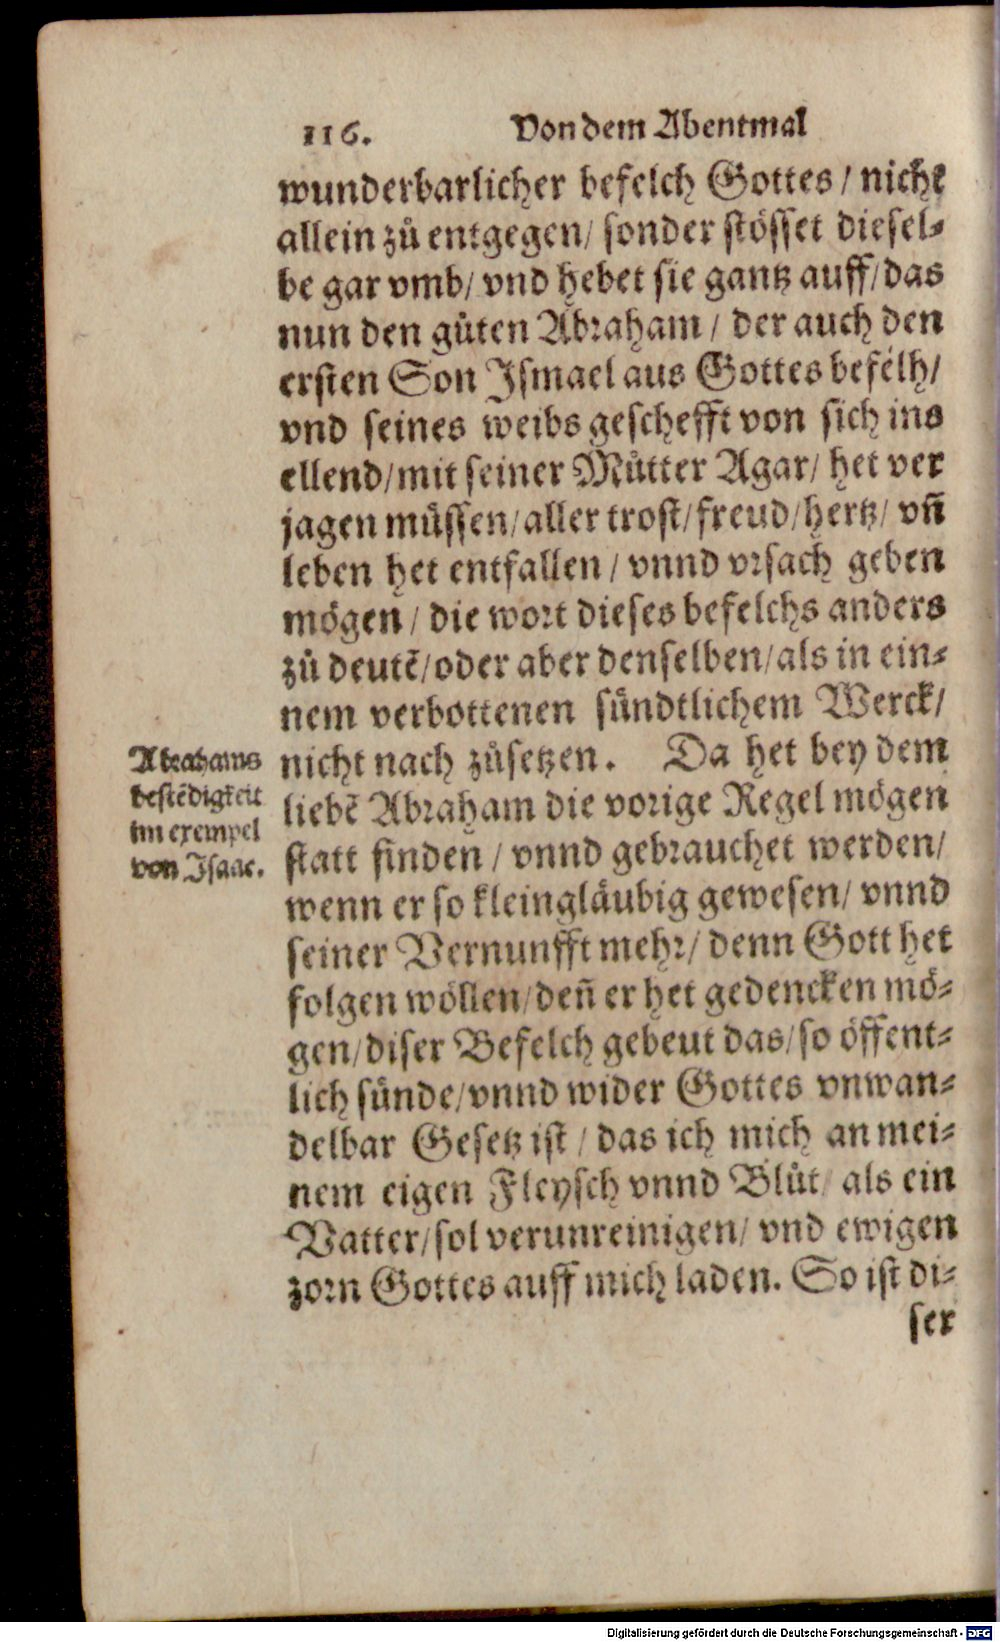 116. Von dem Abentmal
wunderbarlicher befelch Gottes / nicht
allein zů entgegen / sonder stösset diesel⸗
be gar vmb / vnd hebet sie gantz auff / das
nun den gůten Abraham / der auch den
ersten Son Ismael aus Gottes befelh /
vnd seines weibs geschefft von sich ins
ellend / mit seiner Můtter Agar / het ver
jagen müssen / aller trost / freud / hertz / vñ
leben het entfallen / vnnd vrsach geben
mögen / die wort dieses befelchs anders
zů deutẽ / oder aber denselben / als in ein⸗
nem verbottenen sündtlichem Werck /
nicht nach zůsetzen. Da het bey dem
liebẽ Abraham die vorige Regel mögen
statt finden / vnnd gebrauchet werden /
wenn er so kleingläubig gewesen / vnnd
seiner Vernunfft mehr / denn Gott het
folgen wöllen / deñ er het gedencken mö⸗
gen / diser Befelch gebeut das / so öffent⸗
lich sünde / vnnd wider Gottes vnwan⸗
delbar Gesetz ist / das ich mich an mei⸗
nem eigen Fleysch vnnd Blůt / als ein
Vatter / sol verunreinigen / vnd ewigen
zorn Gottes auff mich laden. So ist di⸗
ser
Abrahams
bestẽdigkeit
im exempel
von Isaac.
Digitalisierung gefördert durch die Deutsche Forschungsgemeinschaft - DFG